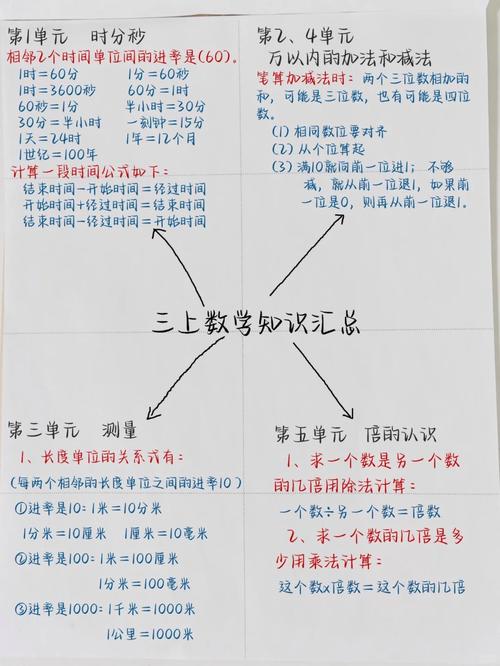 第1单元 时分秒
相邻2个时间单位间的进率是(60)。
1时=60分 1分=60秒
1时=3600秒 60分=1时
60秒=1分 半小时=30分
30分=半小时 一刻钟=15分
1天=24时 1年=12个月
1世纪=100年
计算一段时间公式如下：
结束时间-开始时间=经过时间
开始时间+经过时间=结束时间
结束时间-经过时间=开始时间
第2、4单元
万以内的加法和减法
笔算加减法时：两个三位数相加的
和，可能是三位数，也有可能是四位
数。
(1) 相同数位要对齐
(2) 从个位算起
(3) 满10就向前一位进1；不够
减，就从前一位退1，如果前
一位是0，则再从前一位退1。
三上数学知识汇总
第三单元 测量
1、长度单位的关系式有：
(每两个相邻的长度单位之间的进率10)
①进率是10：1米=10分米
1分米=10厘米 1厘米=10毫米
②进率是100：1米=100厘米
1分米=100毫米
③进率是1000：1千米=1000米
1公里=1000米
第五单元 倍的认识
1、求一个数是另一个数
的几倍用除法计算：
一个数÷另一个数=倍数
2、求一个数的几倍是多
少用乘法计算：
这个数×倍数=这个数的几倍